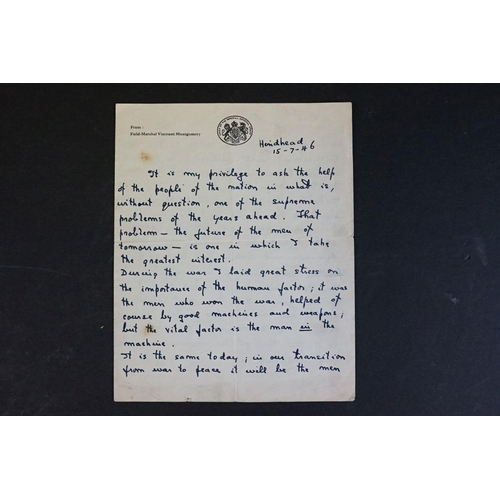 From:
Field-Marshal Viscount Montgomery
Hindhead
15-7-46
It is my privilege to ask the help
of the people of the nation in what is,
without question, one of the supreme
problems of the years ahead. That
problem — the future of the men of
tomorrow — is one in which I take
the greatest interest.
During the war I laid great stress on
the importance of the human factor; it was
the men who won the war, helped of
course by good machines and weapons;
but the vital factor is the man in the
machine.
It is the same today; in our transition
from war to peace it will be the men